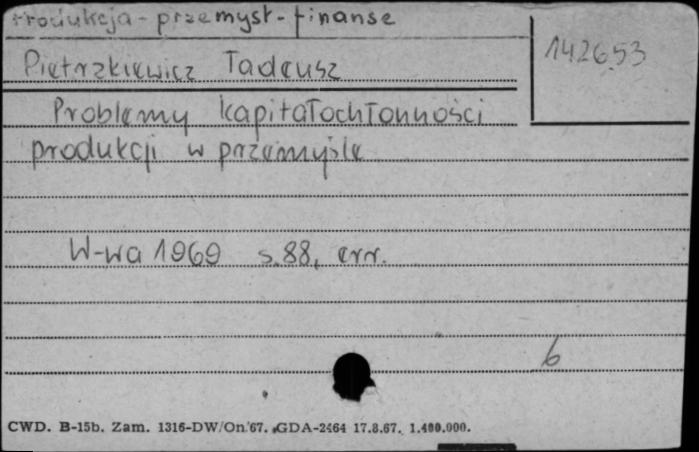 Produkcja - przemysł - finanse
142653
Pietrzkiewicz Tadeusz
Problemy kapitałochłonności
produkcji w przemyśle
W-wa 1969 s. 88, err.
6
CWD. B-15b. Zam. 1316-DW/On/67. GDA-2464 17.8.67. 1.400.000.